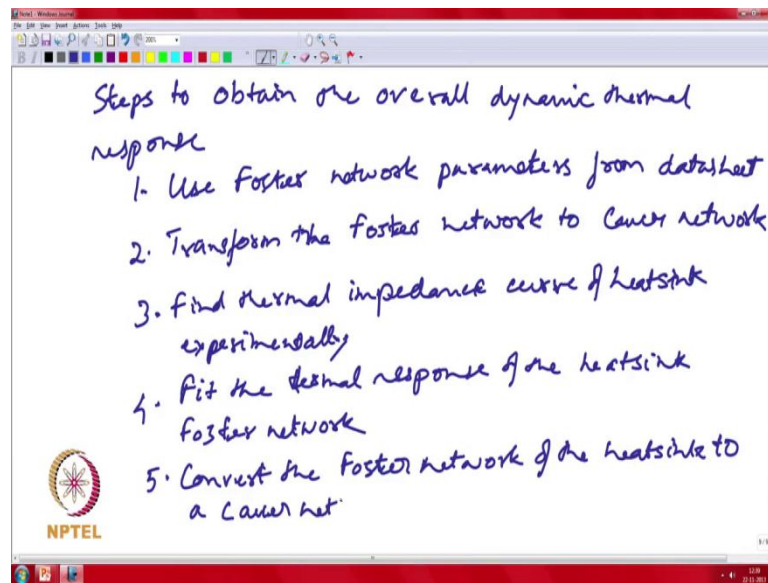 Note1 - Windows Journal
File Edit View Insert Actions Tools Help
200%
B I
Steps to obtain the overall dynamic thermal
response
1. Use Foster network parameters from datasheet
2. Transform the foster network to Cauer network
3. Find thermal impedance curve of heatsink
experimentally
4. Fit the thermal response of the heatsink
foster network
5. Convert the Foster network of the heatsink to
a Cauer net
NPTEL
9/9
12:39
22-11-2017